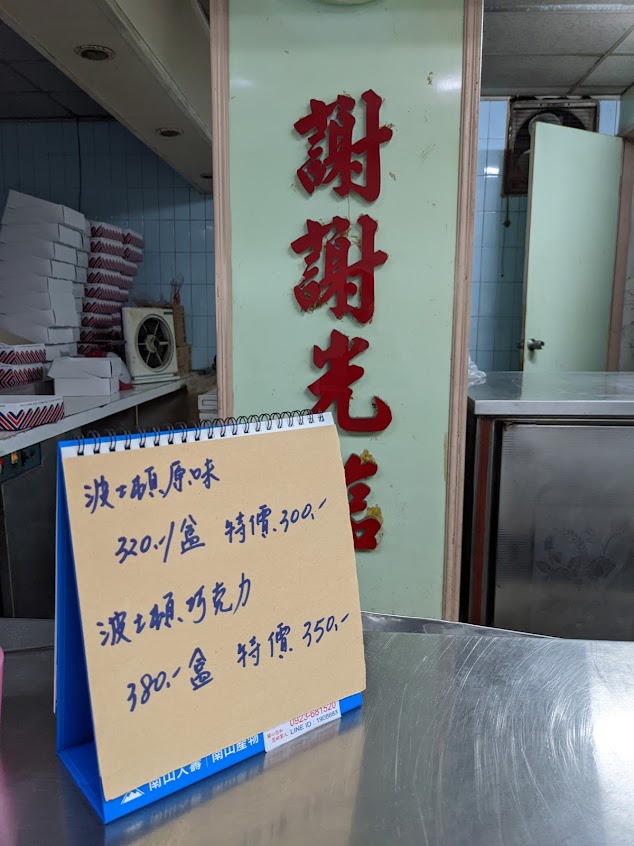 謝謝光臨
波士頓原味
320.-/盒 特價300.-
波士頓巧克力
380.-盒 特價350.-
0923-681520
LINE ID : 1908683
南山人壽 | 南山產物